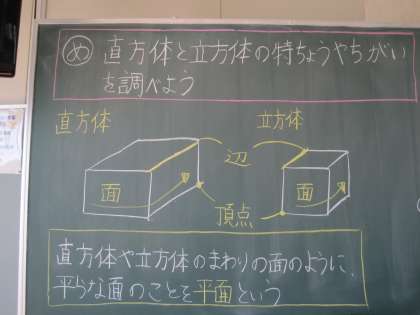 め 直方体と立方体の特ちょうやちがい
を調べよう
直方体
立方体
辺
面
面
頂点
直方体や立方体のまわりの面のように、
平らな面のことを平面という